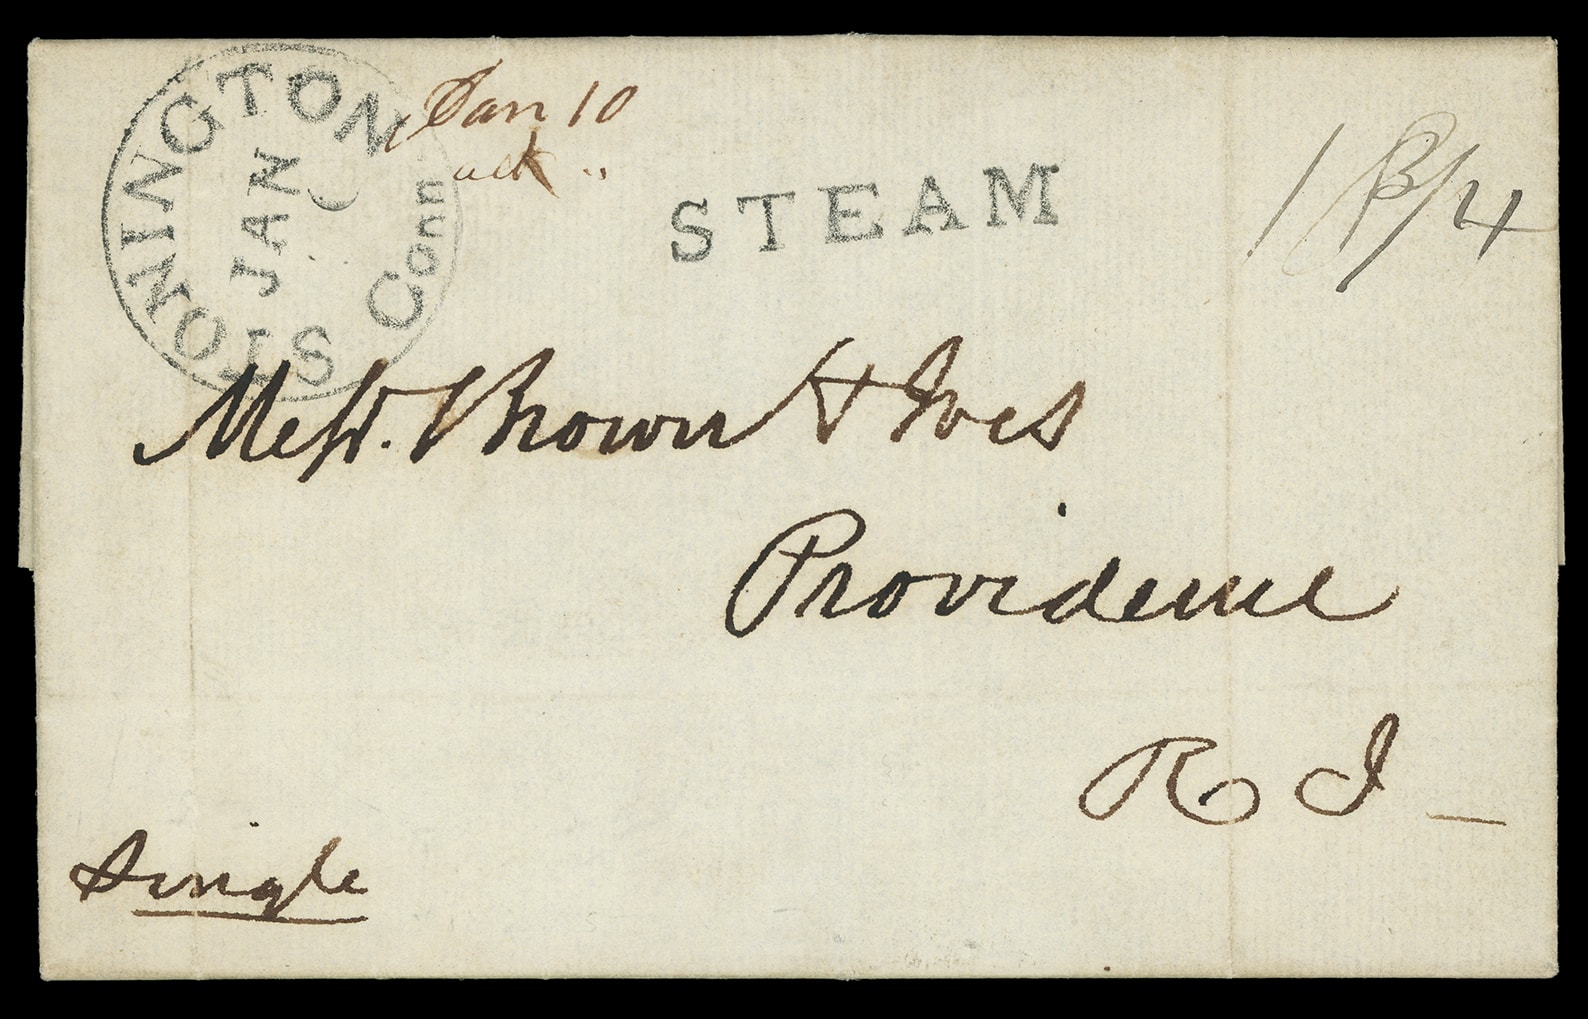 STONINGTON Conn
JAN
Jan 10
ack ..
STEAM
18 3/4
Messrs. Brown & Ives
Providence
R I —
Single